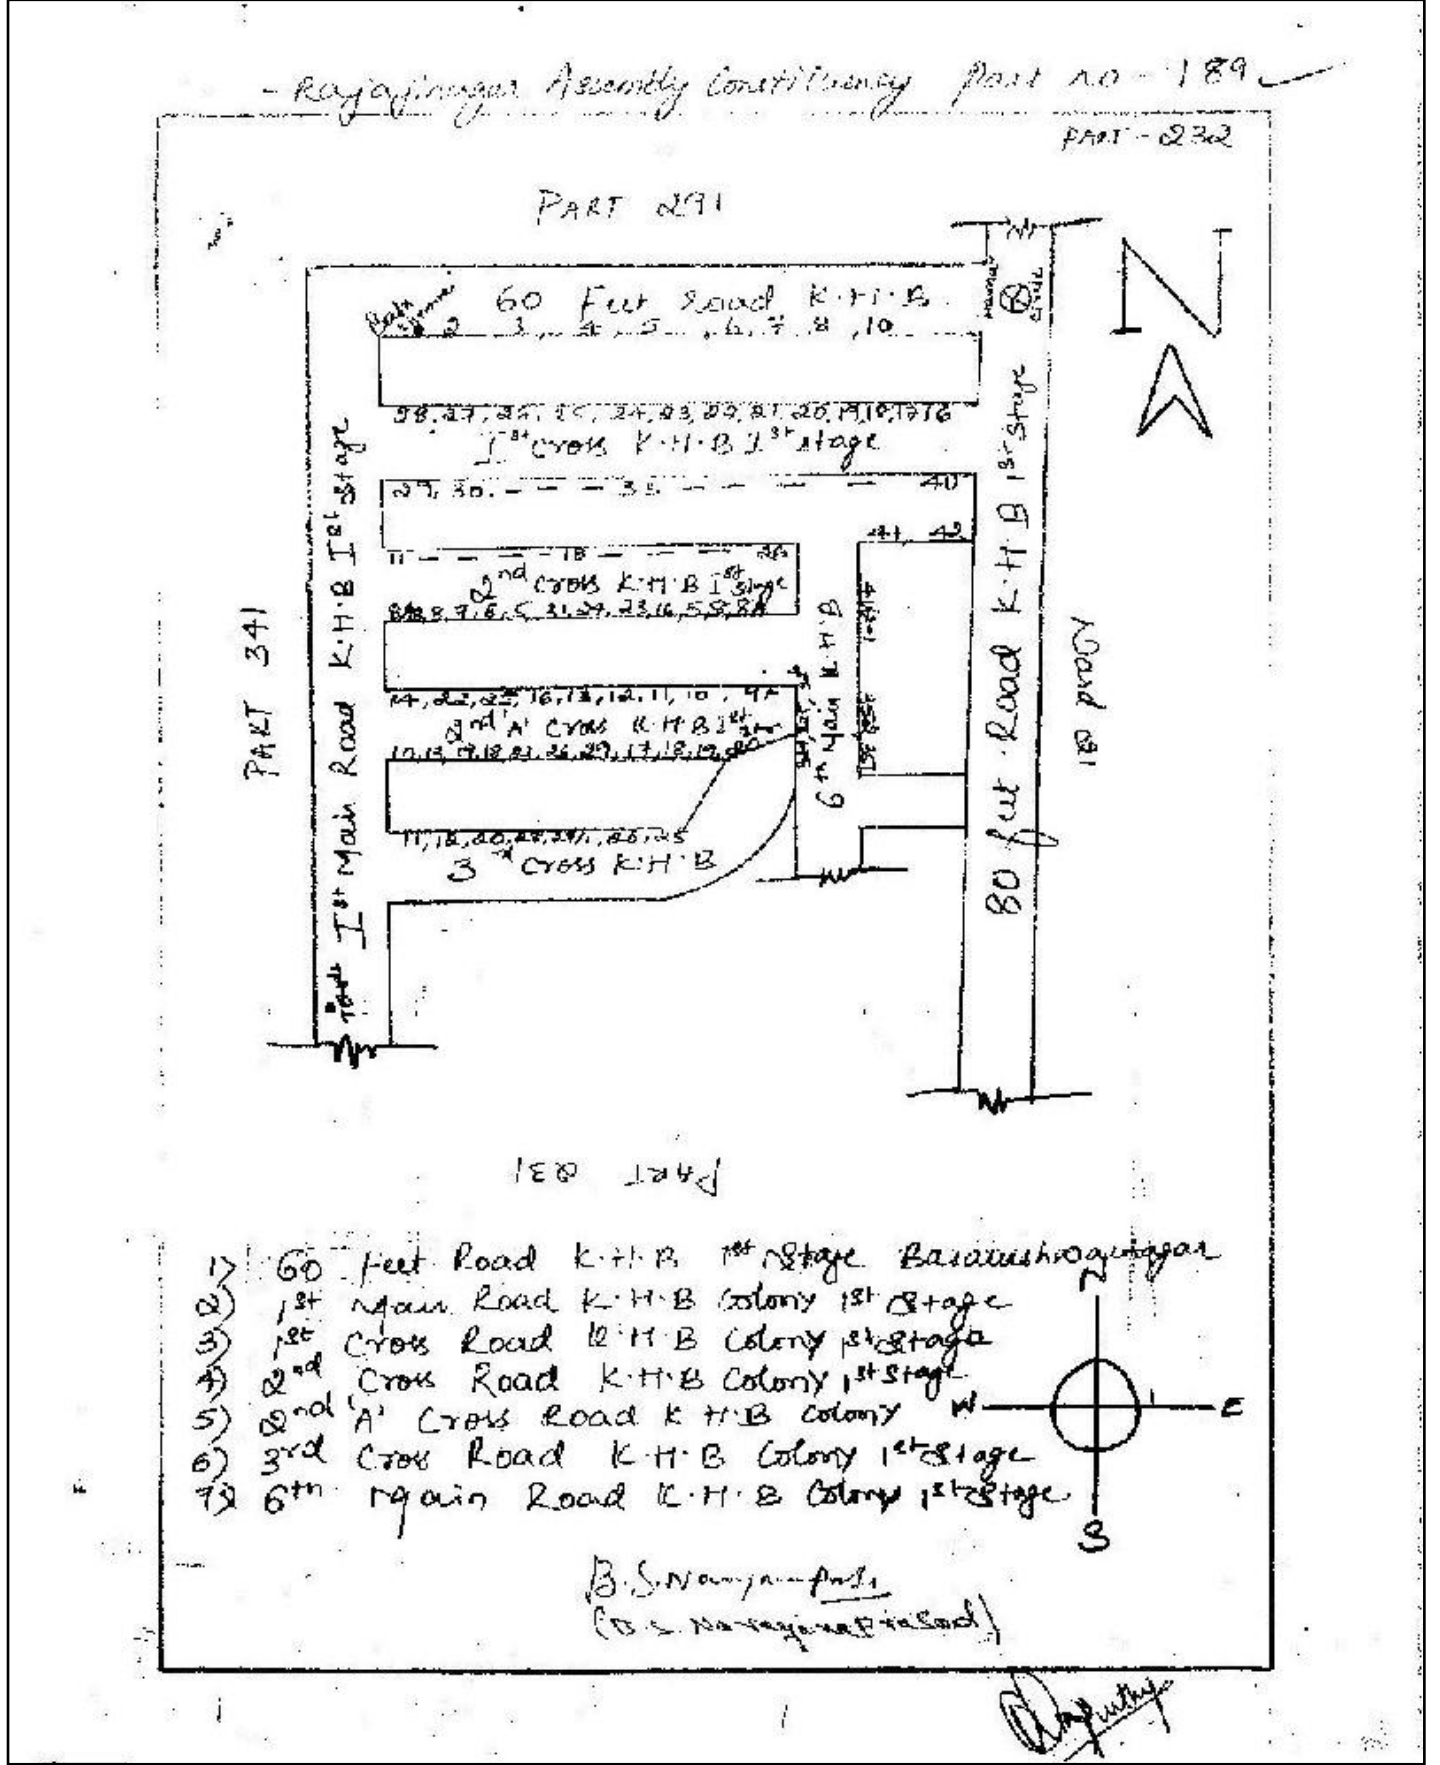 Rajajinagar Assembly Constituency Part no - 189
PART - 232
PART 291
60 Feet Road K.H.B.
2 3, 4, 5, 6, 7 8, 10
28, 27, 26, 25, 24, 23, 22, 21, 20, 19, 18, 17 16
Ist Cross K.H.B Ist stage
29, 30. - - - 35 - - - 40
41, 42
11 - - - - 18 - - - 26
2nd Cross K.H.B Ist Stage
14, 22, 23, 16, 13, 12, 11, 10, 9A
2nd 'A' Cross K.H.B Ist
3rd Cross K.H.B
Ist Main Road K.H.B Ist Stage
6th Main K.H.B
80 feet Road K.H.B 1st Stage
PART 341
Ward 21
PART 231
N
1) 60 feet Road K.H.B 1st Stage Basaweshwaranagar
2) 1st Main Road K.H.B Colony 1st Stage
3) 1st Cross Road K.H.B Colony 1st Stage
4) 2nd Cross Road K.H.B Colony 1st Stage
5) 2nd 'A' Cross Road K.H.B Colony
6) 3rd Cross Road K.H.B Colony 1st Stage
7) 6th Main Road K.H.B Colony 1st Stage
N
W E
S
(B.S. Narayana Prasad)